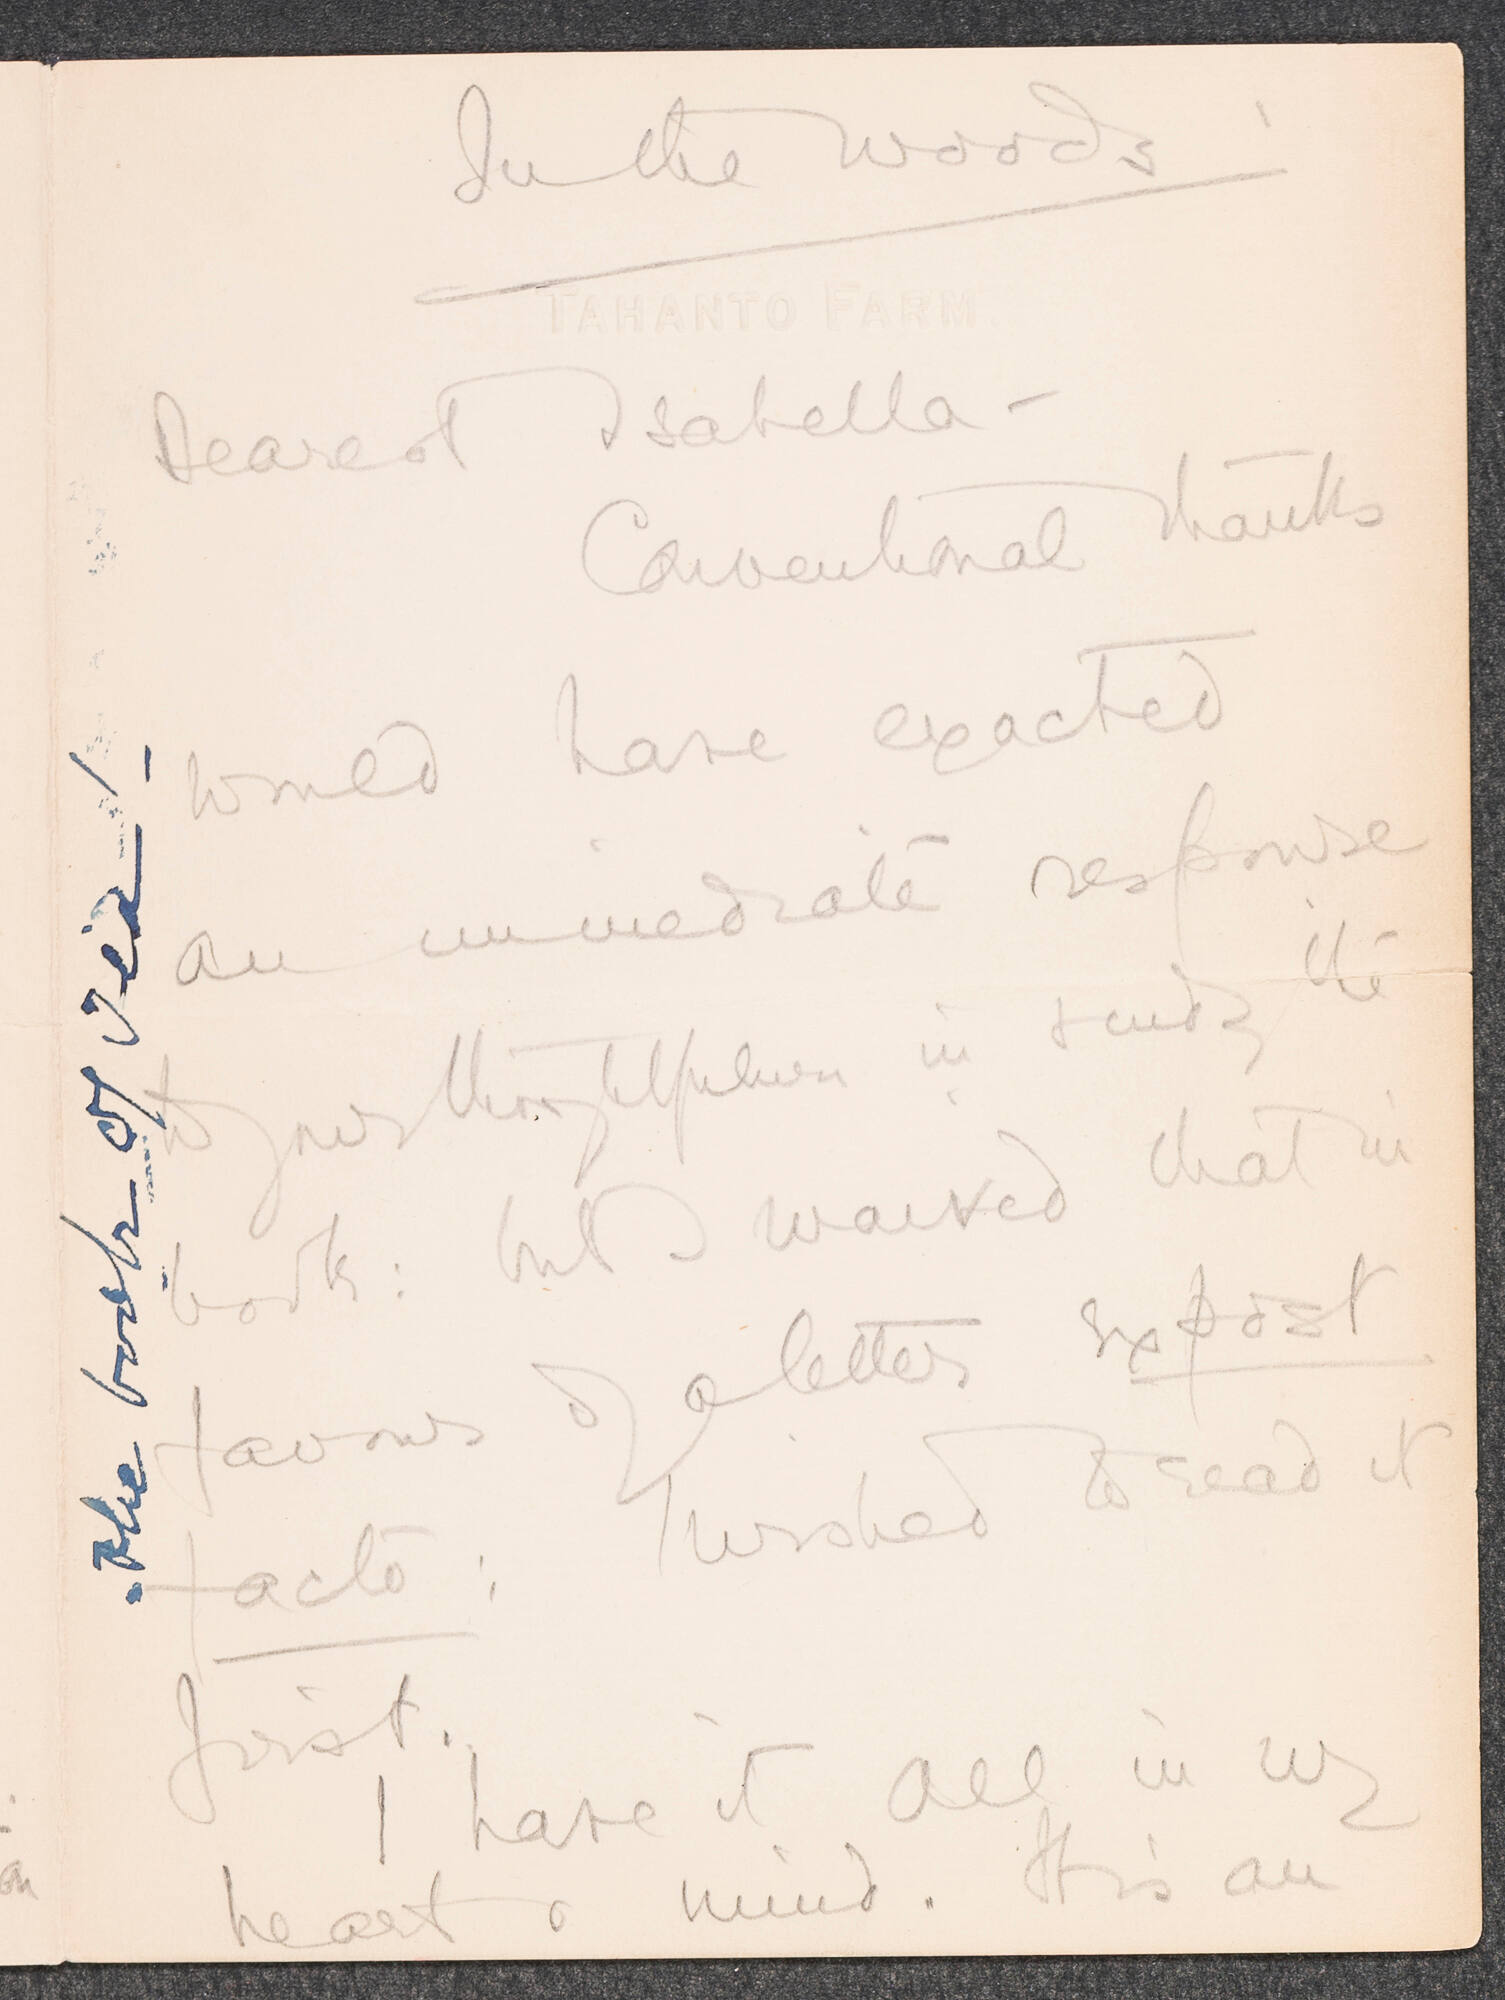 In the woods
TAHANTO FARM.
Dearest Isabella –
Conventional thanks
would have exacted
an immediate response
to your thoughtfulness in sendg the
book: but I waited that in
favour of a letter ex post
facto: I wished to read it
first.
I have it all in my
heart & mind. It is an
the book of
on